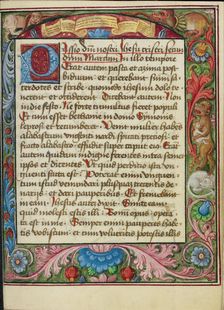 Passio dñi nostri Jhesu cristi secun
dum Marcum In illo tempore
Erat autem pasca et azima post
biduum et querebant summi sa
cerdotes et scribe quomodo ihesum dolo te
nerent et occiderent Dicebant autem Non
in die festo Ne forte tumultus fieret populi
Et cum esset bethanie in domo Symonis
leprosi et recumberet Venit mulier habens
alabastrum unguenti nardi spicati preciosi et
fracto alabastro effudit super caput eius Erāt
autem quidam indigne ferentes intra semet
ipsos et dicentes Ut quid perditio ista un
guenti facta est Poterat enim unguen
tum istud venundari plusquam trecentis de
narijs et dari pauperibus Et fremebant
in eam Jhesus autem dixit Sinite eam
quid molesti estis illi Bonum opus opera
ta est in me Semper enim pauperes habe
tis vobiscum et cum volueritis potestis illis